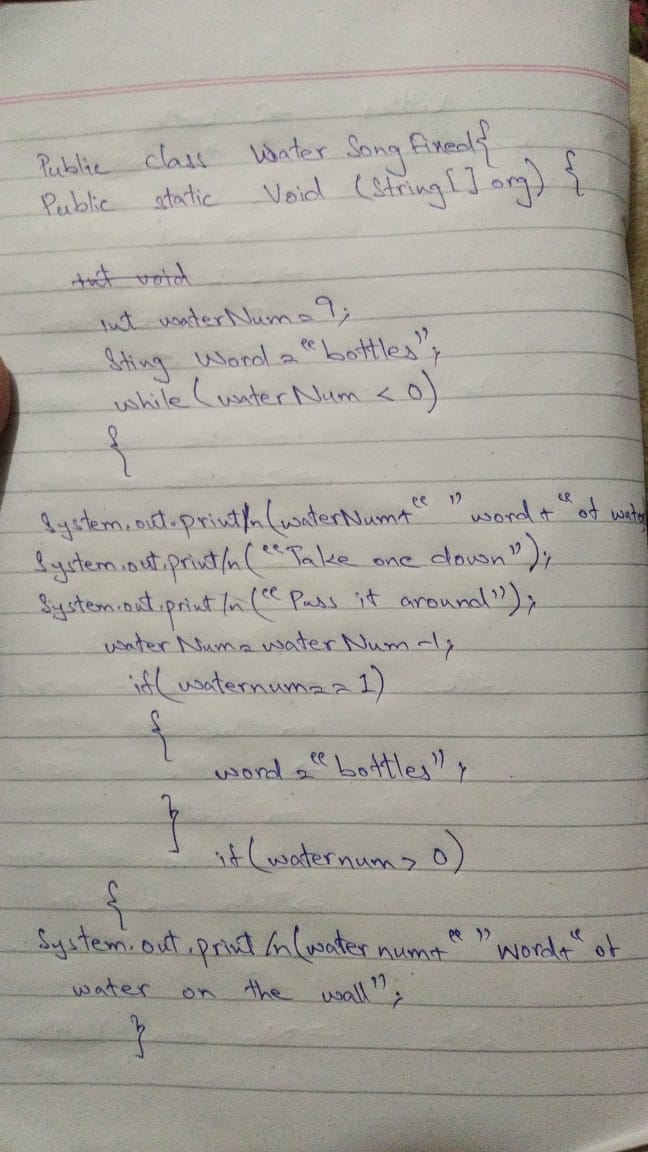 Public class Water Song Fixed{
Public static Void (String[] org) {
int void
int waterNum = 9;
Sting Word = "bottles";
while (waterNum < 0)
{
System.out.println(waterNum+" " word + "of water
System.out.println("Take one down");
System.out.println("Pass it around");
waterNum = waterNum -1;
if( waternum == 1)
{
word = "bottles";
}
if(waternum > 0)
{
System.out.println(waternum+" " word+" of
water on the wall";
}